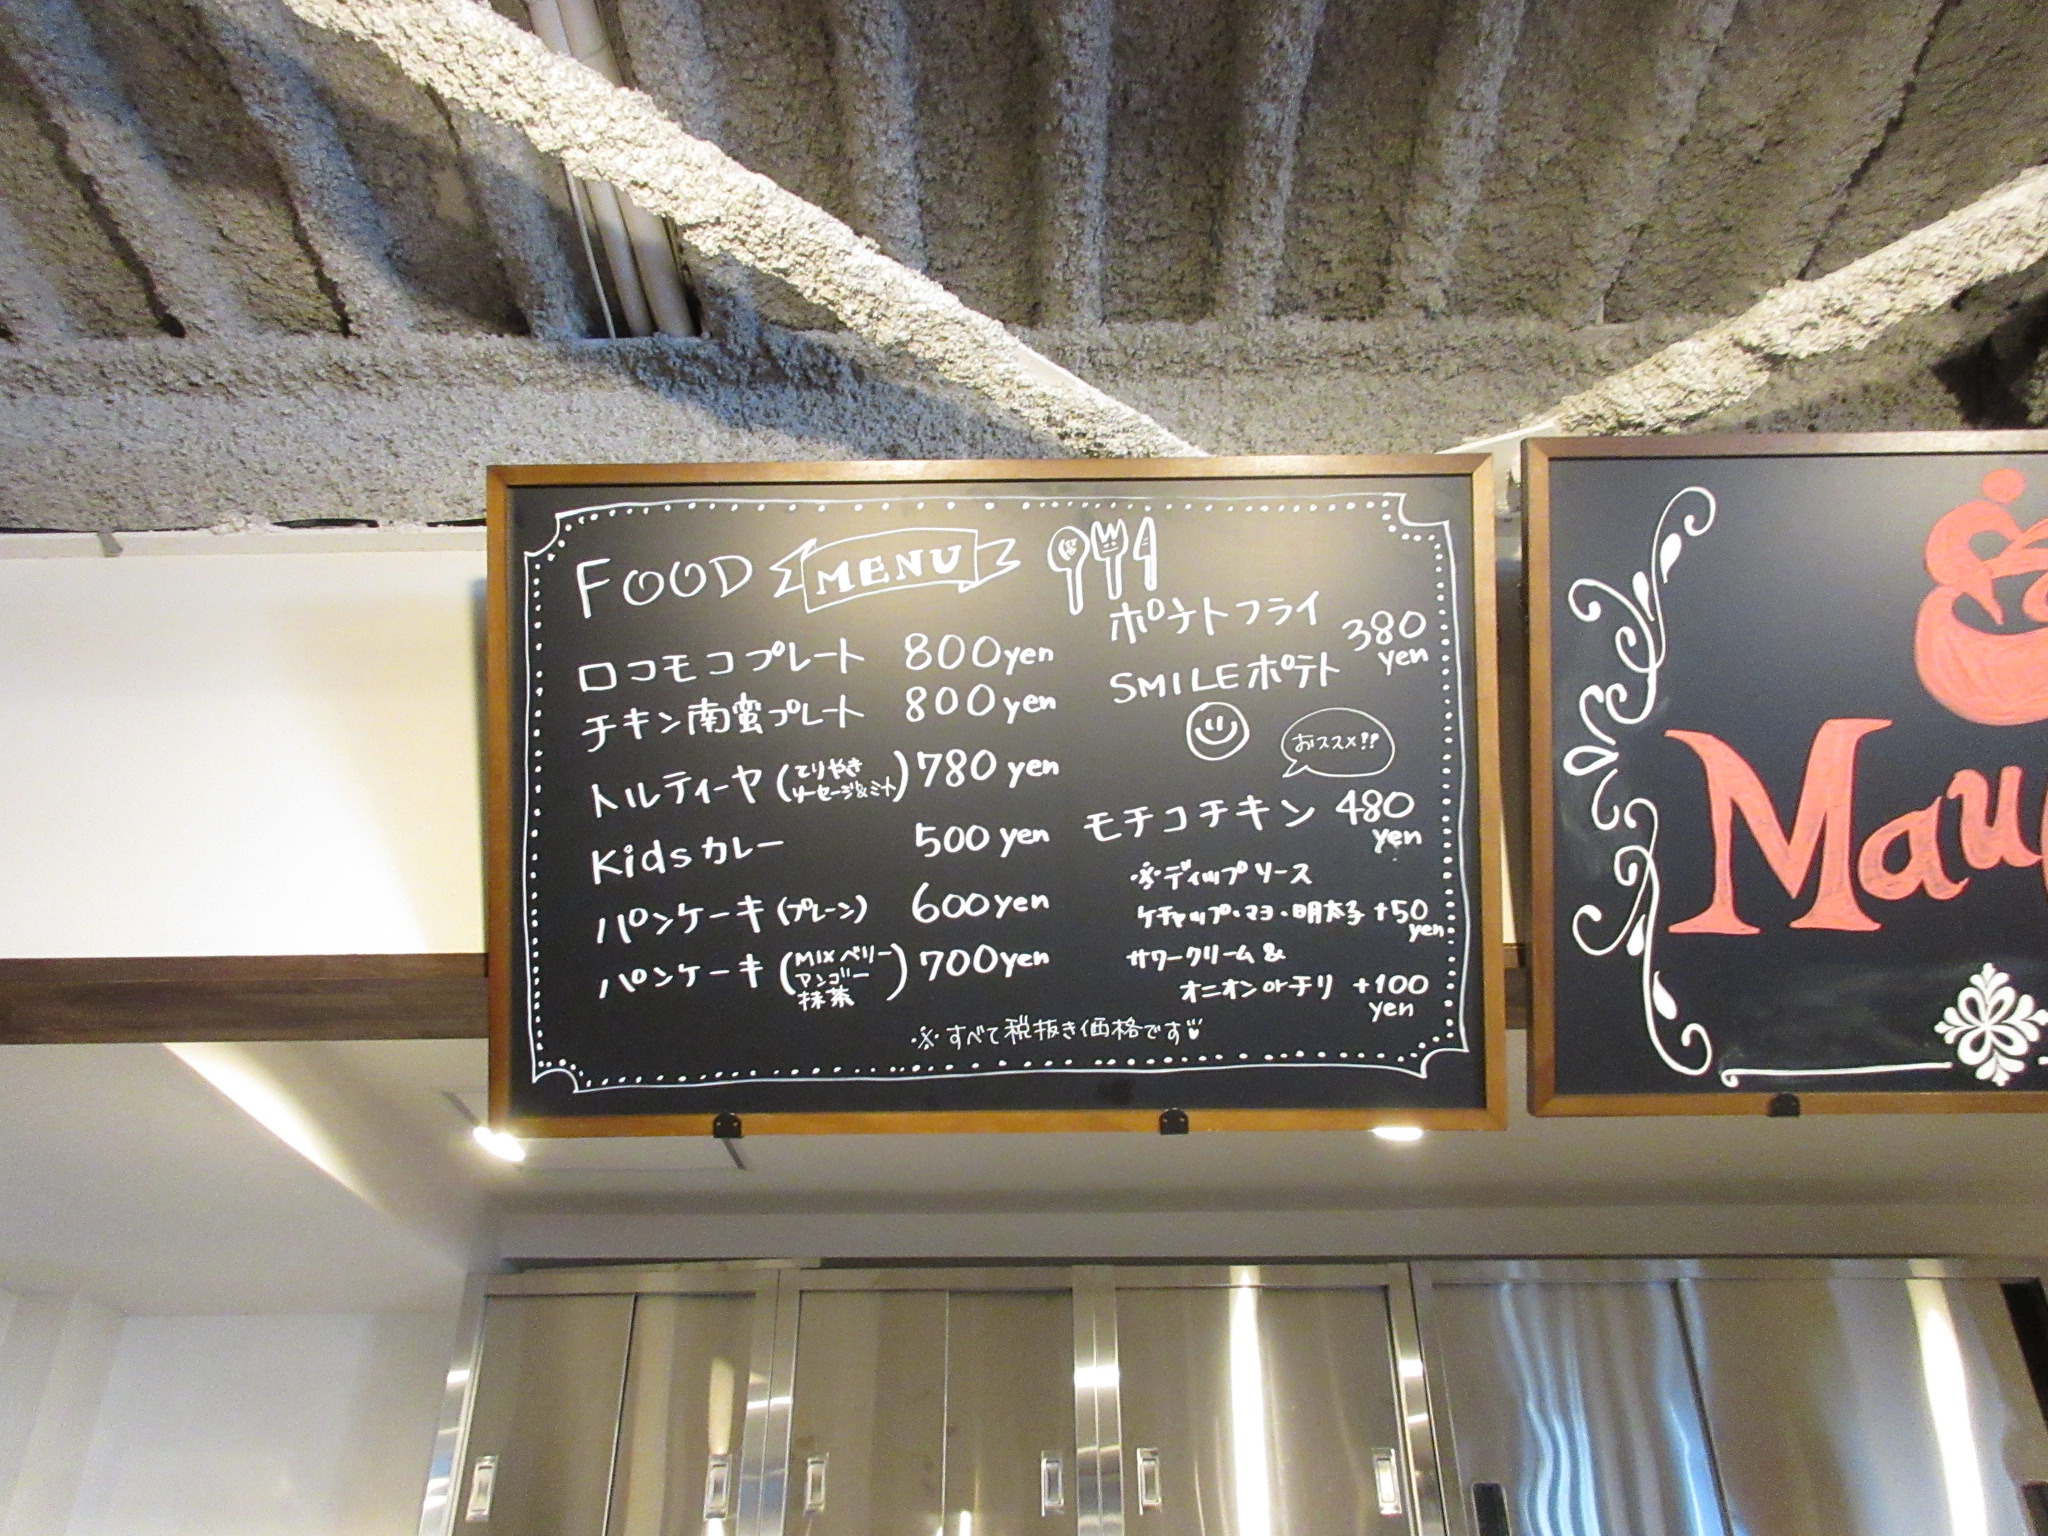 FOOD MENU
ロコモコプレート 800yen
チキン南蛮プレート 800yen
トルティーヤ (てりやき ソーセージ&ミート) 780 yen
Kids カレー 500 yen
パンケーキ (プレーン) 600yen
パンケーキ (MIXベリー マンゴー 抹茶) 700yen
ポテトフライ 380 yen
SMILEポテト
おススメ!!
モチコチキン 480 yen
※ディップソース
ケチャップ・マヨ・明太子 +50 yen
サワークリーム &
オニオン or チリ +100 yen
※すべて税抜き価格です